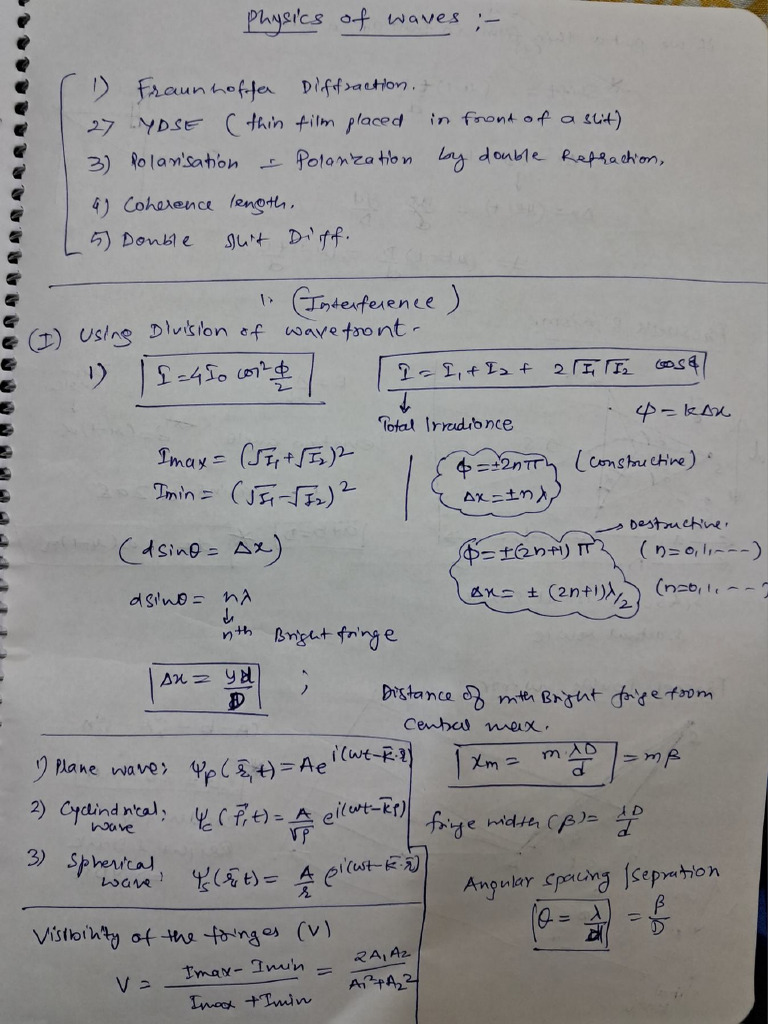 Physics of waves :-
1) Fraunhoffer Diffraction.
2) YDSE ( thin film placed in front of a slit)
3) Polarisation = Polarization by double Refraction,
4) Coherence length.
5) Double slit Diff.
1. (Interference)
(I) Using Division of wavefront-
1) I = 4I₀ cos² ϕ/2
I = I₁ + I₂ + 2√I₁√I₂ cosϕ
↓
Total Irradiance
ϕ = kΔx
Imax = (√I₁+√I₂)²
Imin = (√I₁-√I₂)²
ϕ = ±2nπ (constructive)
Δx = ±nλ
(dsinθ = Δx)
→ Destructive.
ϕ = ±(2n+1)π (n=0,1,---)
Δx = ± (2n+1)λ/2 (n=0,1,---)
dsinθ = nλ
↓
nth Bright fringe
Δx = yd/D ;
Distance of mth Bright frige from
central max.
xm = mλD/d = mβ
fringe width (β) = λD/d
Angular spacing /sepration
θ = λ/d = β/D
1) Plane wave; Ψp(r̄,t) = Ae^i(ωt-k̄.r̄)
2) Cyclindrical wave; Ψc(ρ⃗,t) = A/√ρ e^i(ωt-k̄ρ)
3) Spherical wave; Ψs(r̄,t) = A/r e^i(ωt-k̄.r̄)
Visibility of the fringes (V)
V = Imax-Imin/Imax+Imin = 2A₁A₂/A₁²+A₂²